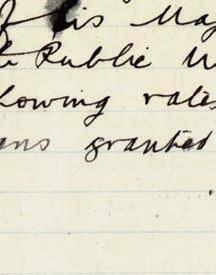 of his Maj
Public W
howing rates
ans granted